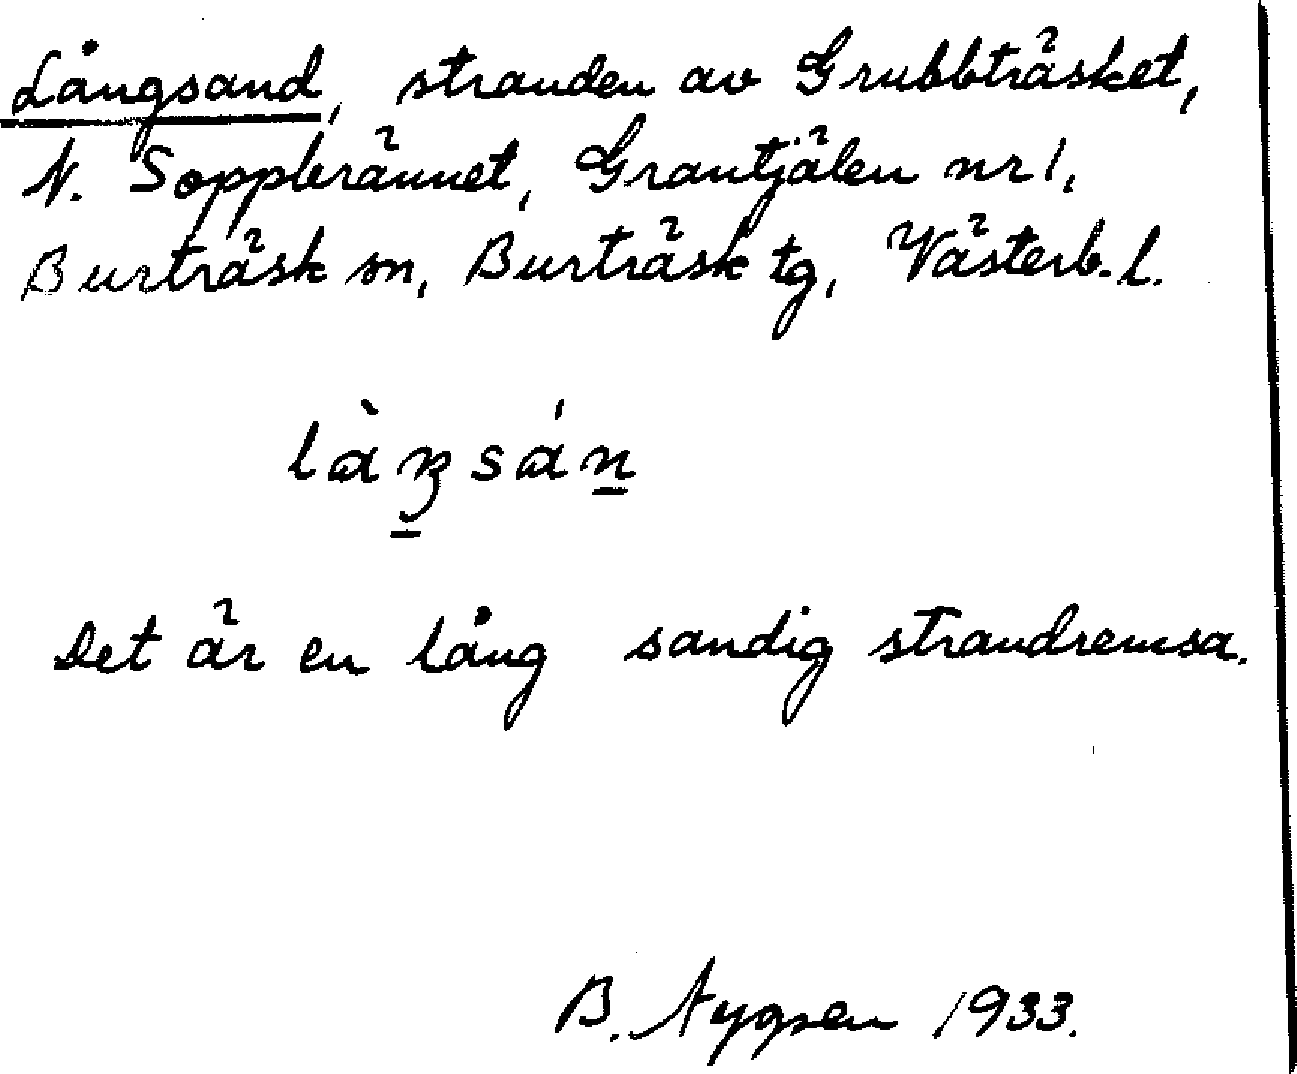 Långsand, stranden av Grubbträsket,
N. Soppbrännet, Grantjälen nr 1,
Burträsk sn, Burträsk tg, Västerb. l.
làŋsán
Det är en lång sandig strandremsa.
B. 1933.